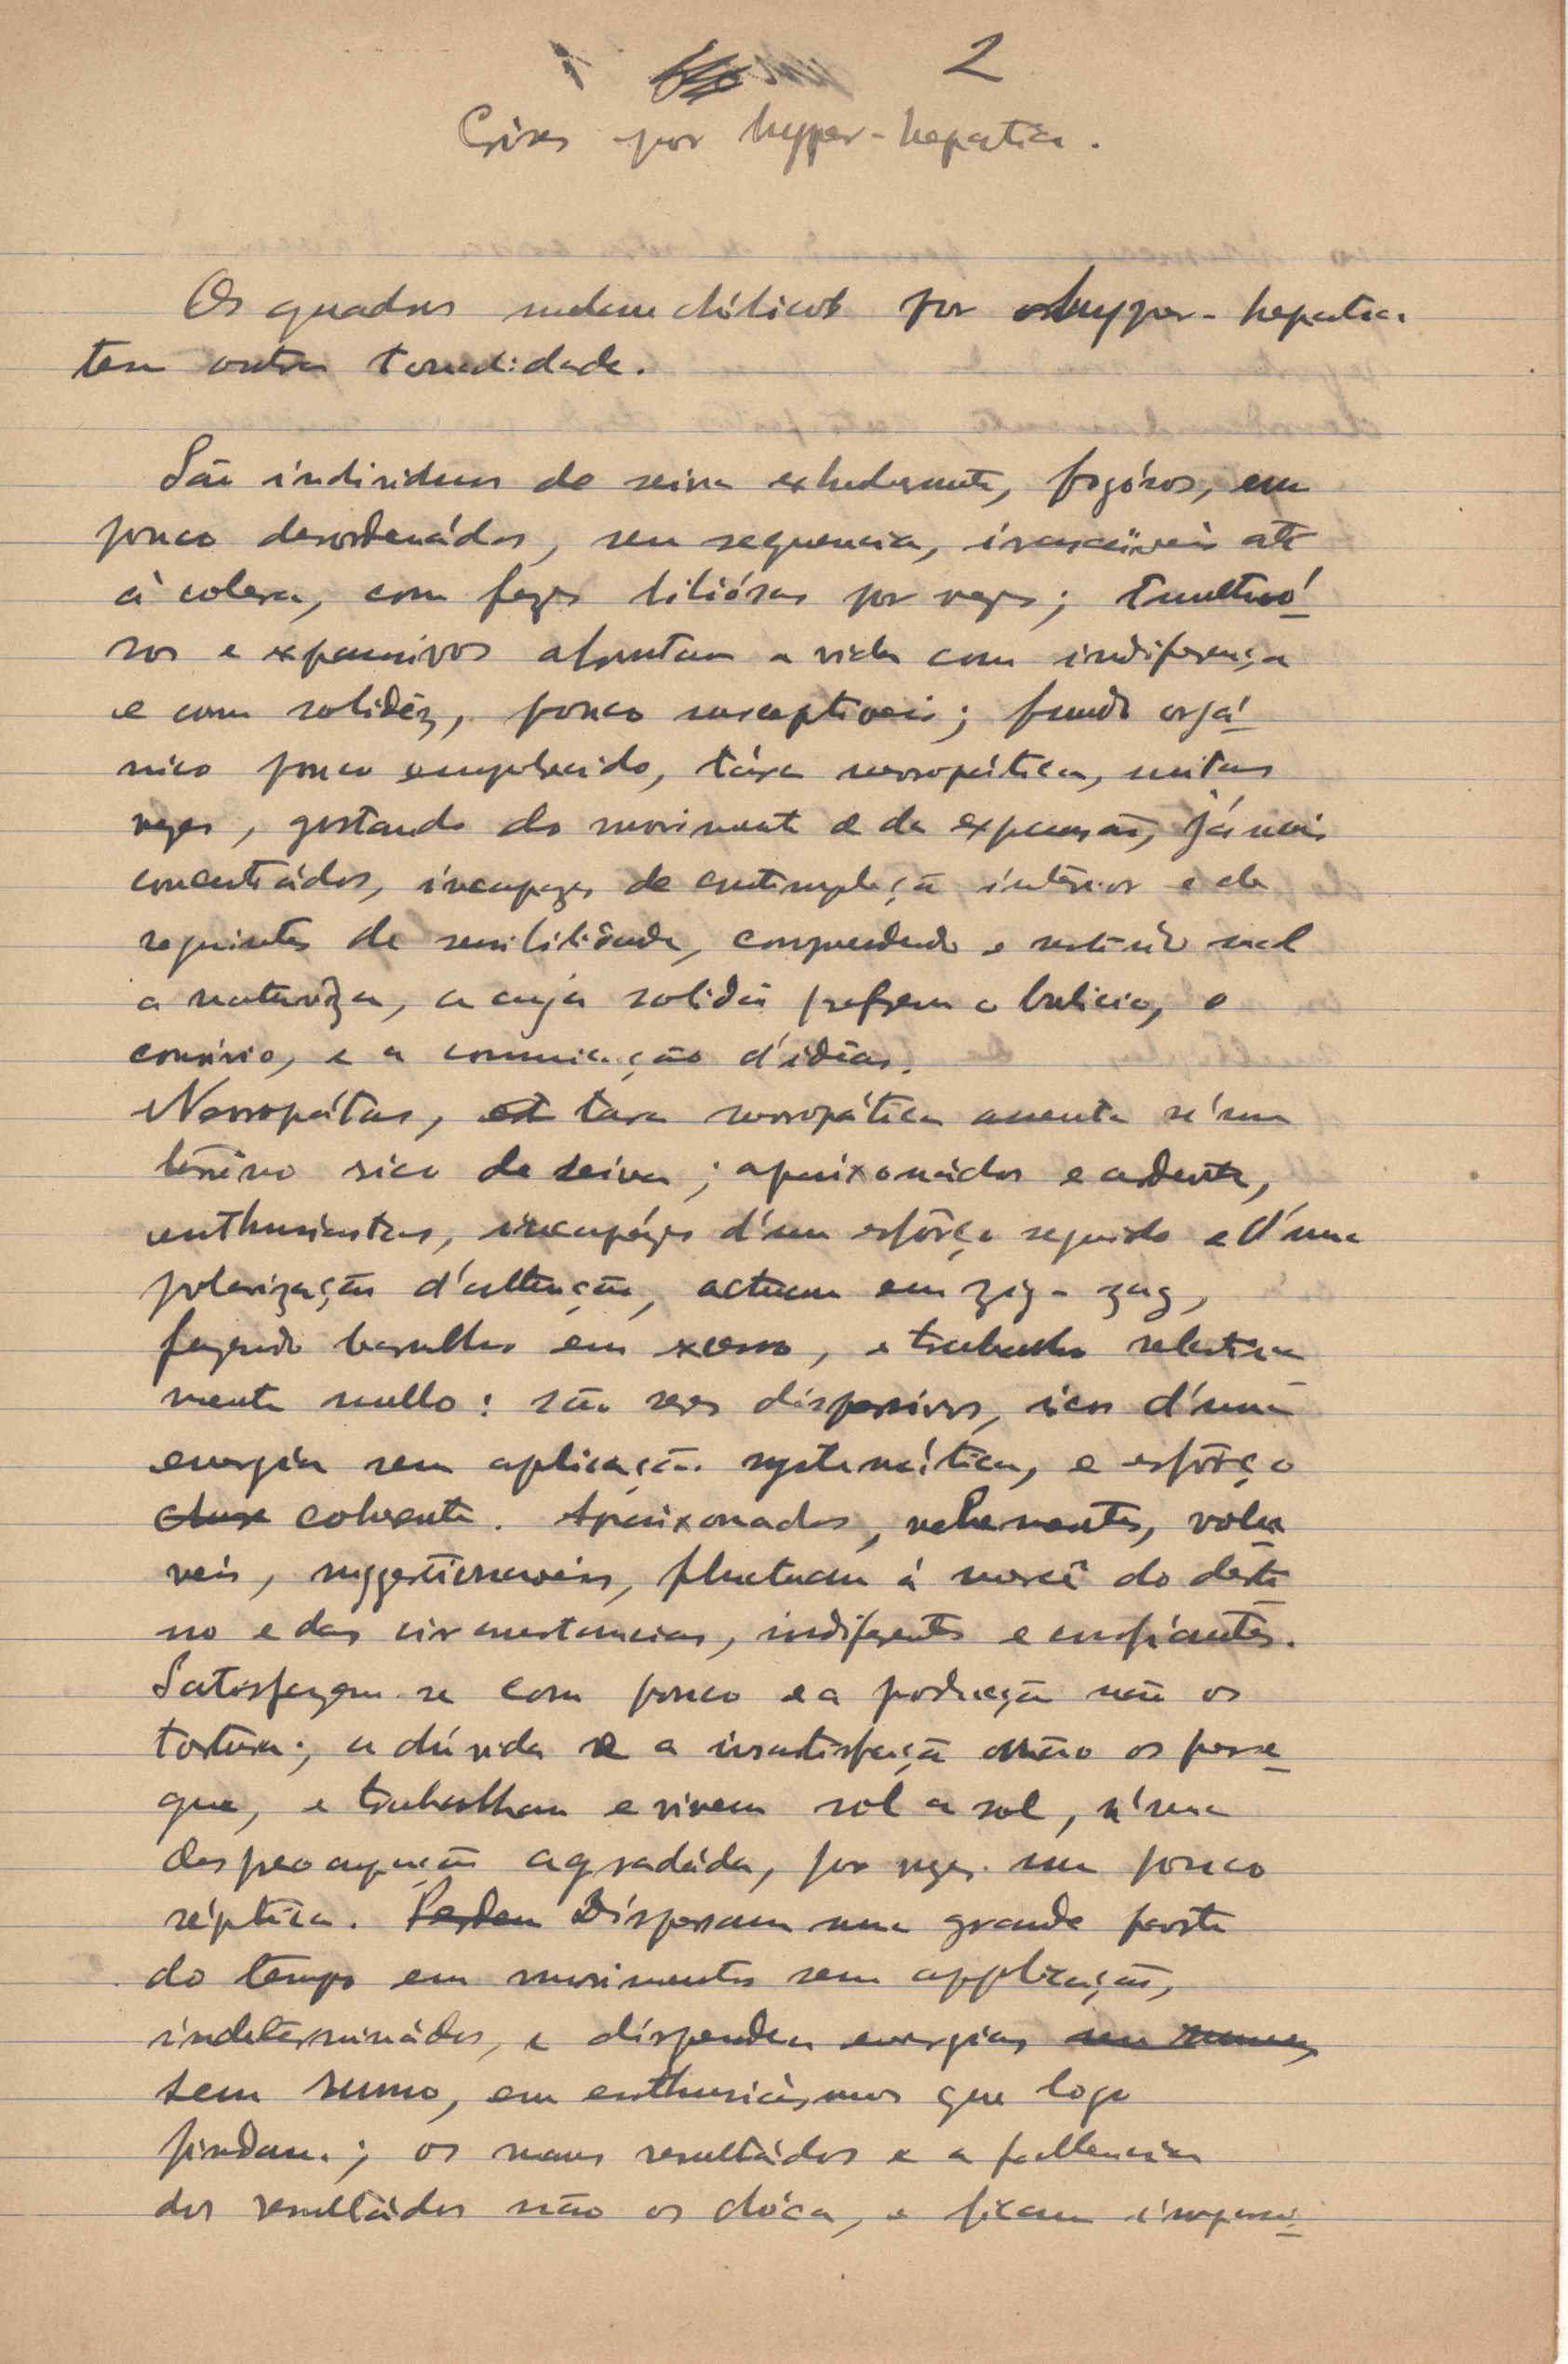 2
Crises por hyper-hepatia.
Os quadros melancholicos por hyper-hepatia
tem outra tonalidade.
São individuos de seiva exhuberante, fogósos, um
pouco desordenádos, sem sequencia, irasciveis até
à colera, com fezes biliósas por vezes; tumultuó-
sos e expansivos afrontam a vida com indiferença
e com solidêz, pouco susceptiveis; fundo orgá-
nico pouco empobrecido, tára nevropática, muitas
vezes, gostando do movimento e da expansão, já mais
concentrádos, incapazes de contemplação interior e de
requintes de sensibilidade, comprendendo e sentindo mal
a naturêza, a cuja solidão preferem o bulicio, o
convivio, e a comunicação d'idêas.
Nevropátas, a tara nevropática assenta n'um
terrêno rico de seiva; apaixonádos e ardentes,
enthusiastas, incapázes d'um esfôrço seguido e d'uma
polarização d'attenção, actuam em zig-zag,
fazendo barulho em excesso, e trabalho relativa
mente nullo: são seres dispersivos, ricos d'uma
energia sem aplicação systemática, e esfôrço
coherente. Apaixonados, vehementes, volu
veis, suggestionaveis, fluctuam á mercê do desti
no e das circumstancias, indiferentes e confiantes.
Satisfazem-se com pouco e a producção não os
tortura; a dúvida e a insatisfação não os perse-
gue, e trabalham e vivem sol a sol, n'uma
despreocupação agradáda, por vezes um pouco
séptica. Perdem Dispersam uma grande parte
do tempo em movimentos sem applicação,
indeterminádos, e dispendem energias sem rumo,
sem rumo, em enthusiásmos que logo
findam; os maus resultádos e a fallencia
dos resultádos não os chóca, e ficam impassi-